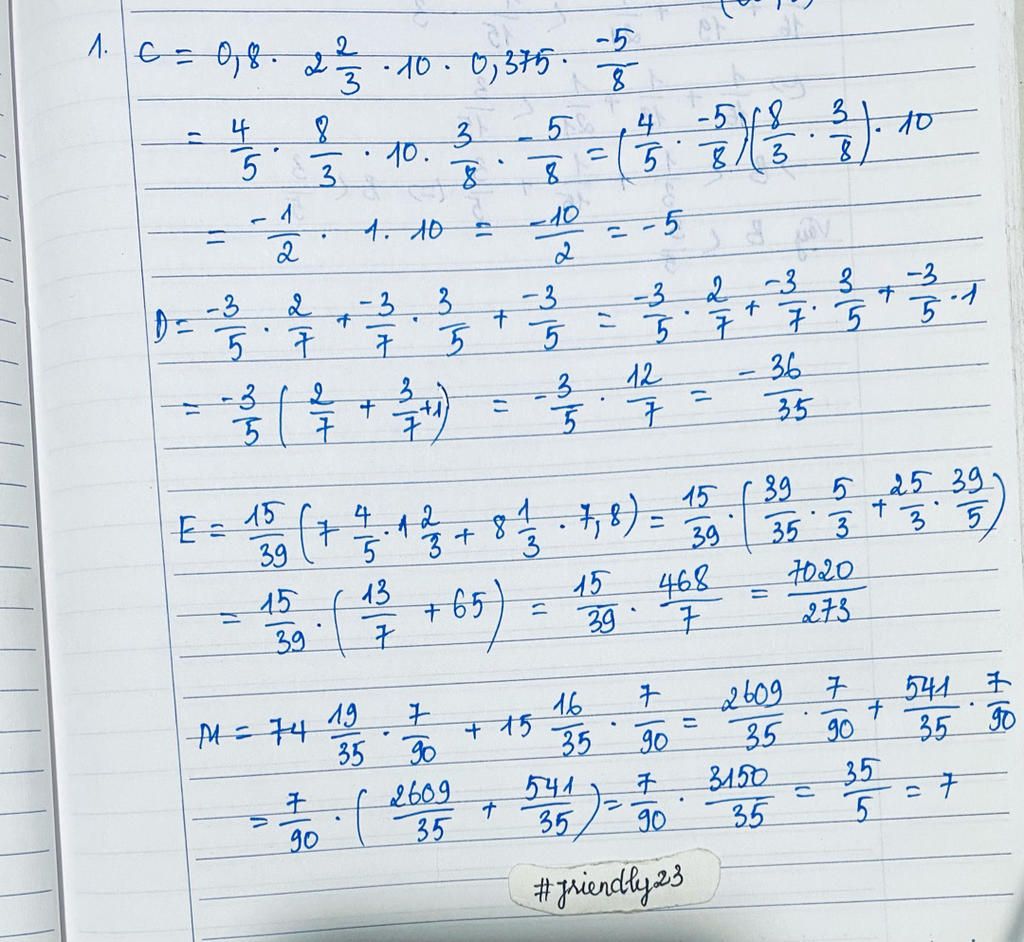 1. C = 0,8 · 2 2/3 · 10 · 0,375 · -5/8
= 4/5 · 8/3 · 10 · 3/8 · -5/8 = (4/5 · -5/8)(8/3 · 3/8) · 10
= -1/2 · 1 · 10 = -10/2 = -5
D = -3/5 · 2/7 + -3/7 · 3/5 + -3/5 = -3/5 · 2/7 + -3/7 · 3/5 + -3/5 · 1
= -3/5 (2/7 + 3/7 +1) = -3/5 · 12/7 = -36/35
E = 15/39 (7 4/5 · 1 2/3 + 8 1/3 · 7,8) = 15/39 · (39/35 · 5/3 + 25/3 · 39/5)
= 15/39 · (13/7 + 65) = 15/39 · 468/7 = 7020/273
M = 74 19/35 · 7/90 + 15 16/35 · 7/90 = 2609/35 · 7/90 + 541/35 · 7/90
= 7/90 · (2609/35 + 541/35) = 7/90 · 3150/35 = 35/5 = 7
#friendly23